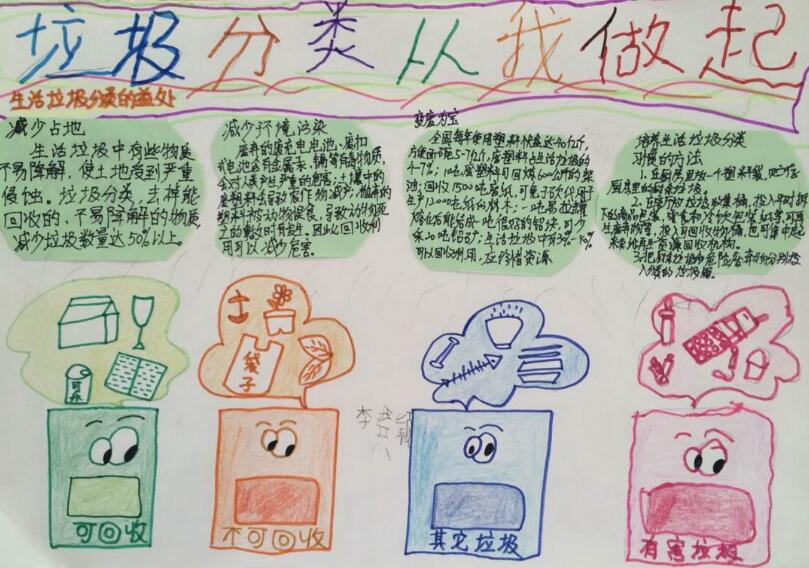 垃圾分类从我做起
生活垃圾分类的益处
减少占地
生活垃圾中有些物质
不易降解,使土地受到严重
侵蚀。垃圾分类,去掉能
回收的、不易降解的物质
减少垃圾数量达50%以上。
减少环境污染
废弃的废充电电池、废扣
式电池含有金属汞、镉等有毒物质,
会对人类产生严重的危害;土壤中的
废塑料会导致农作物减产;抛弃的
塑料被动物误食,导致动物死
亡的事故时有发生。因此回收利
用可以减少危害。
变废为宝
全国每年使用塑料快餐盒达40亿个,
方便面碗5-7亿个,废塑料占生活垃圾的
4-7%;1吨废塑料可回炼600公斤的柴
油;回收1500吨废纸,可免于砍伐用于
生产1200吨纸的林木;一吨易拉罐
熔化后能结成一吨很好的铝块,可少
采20吨铝矿;生活垃圾中有30%-40%
可以回收利用,应珍惜资源
培养生活垃圾分类
习惯的方法
1.在厨房里放一个塑料袋
厨房里的
3.把有害垃圾和危险废弃物分别投
入分类的垃圾桶。
袋子
可乐
李
可回收
不可回收
其它垃圾
有害垃圾